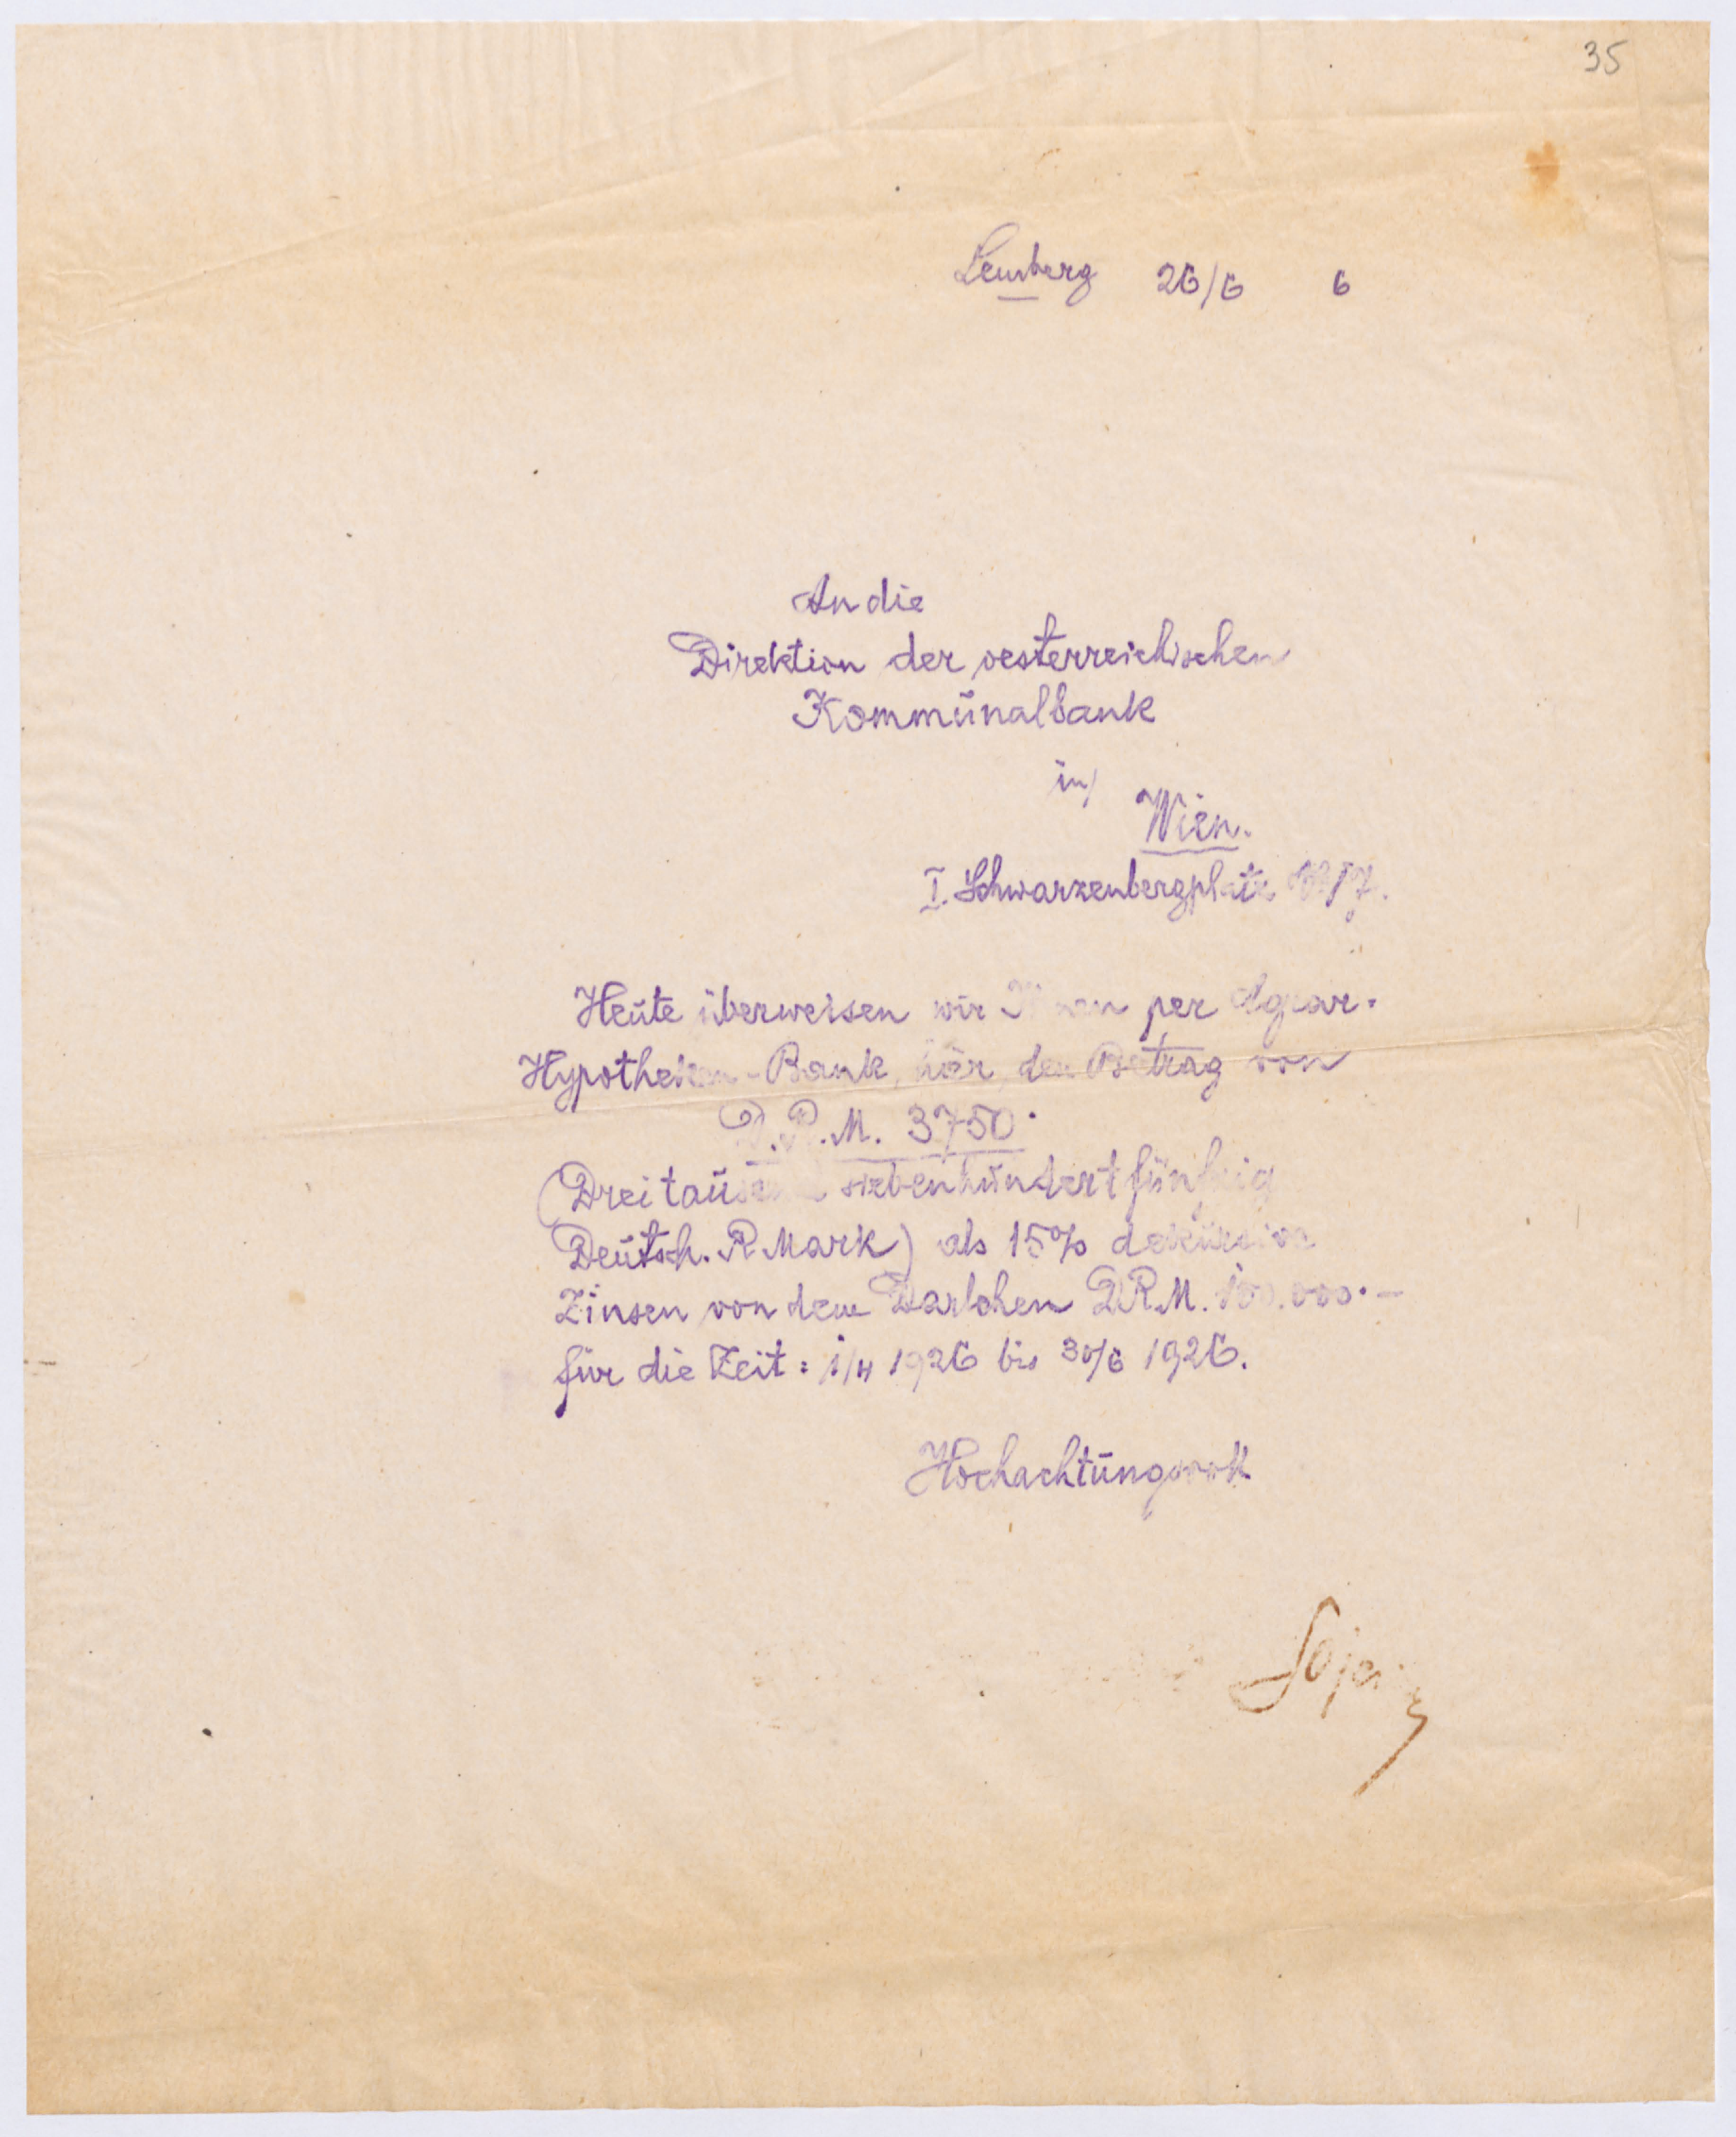 35
Lemberg 26/6 6
An die
Direktion der oesterreichischen
Kommŭnalbank
in
Wien.
I. Schwarzenbergplatz
Heŭte überweisen wir Ihnen per Agrar-
Hypotheken-Bank, hier, den Betrag von
D.R.M. 3750.
(Dreitaŭsend siebenhŭndertfünfzig
Deŭtsch. R Mark) als 15% dekursive
Zinsen von dem Darlehen D.R.M. 100.000.-
für die Zeit: 1/4 1926 bis 30/6 1926.
Hochachtŭngsvoll